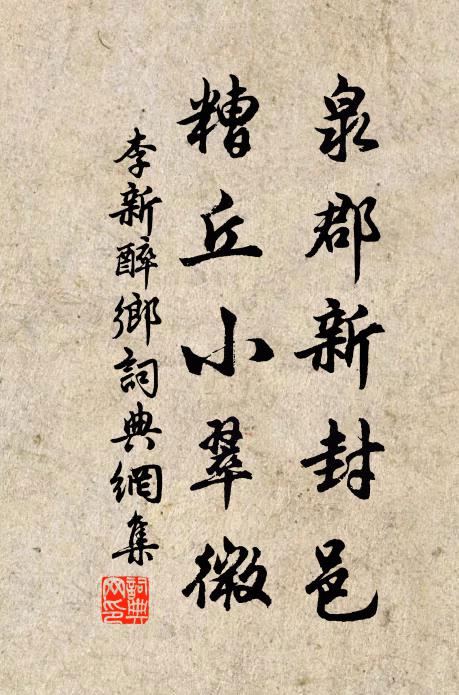 泉郡新封邑
糟丘小翠微
李新醉鄉詞典網集
詞典
网印